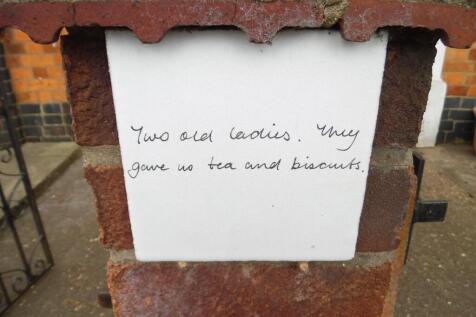 Two old ladies. They
gave us tea and biscuits.